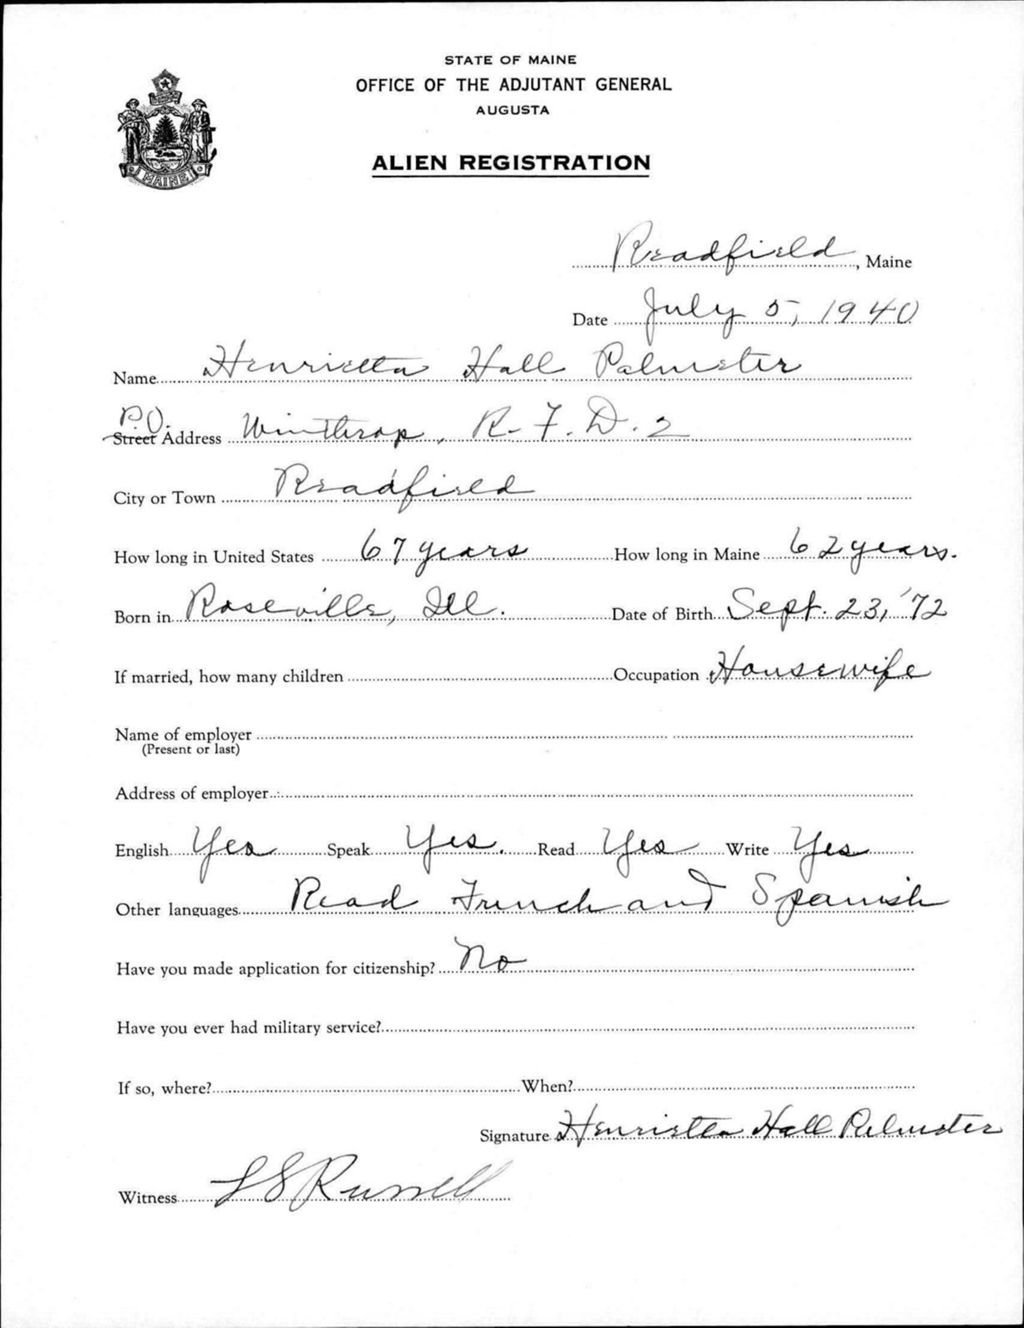 STATE OF MAINE
OFFICE OF THE ADJUTANT GENERAL
AUGUSTA
ALIEN REGISTRATION
MAINE
Readfield, Maine
Date July 5, 1940
Name Henrietta Hall Palmeter
P.O.
Street Address Winthrop, R.F.D. 2
City or Town Readfield
How long in United States 67 years How long in Maine 62 years.
Born in Roseville, Ill. Date of Birth Sept. 23, '72
If married, how many children Occupation Housewife
Name of employer
(Present or last)
Address of employer
English Yes Speak Yes. Read Yes Write Yes
Other languages Read French and Spanish
Have you made application for citizenship? No
Have you ever had military service?
If so, where? When?
Signature Henrietta Hall Palmeter
Witness L S Russell